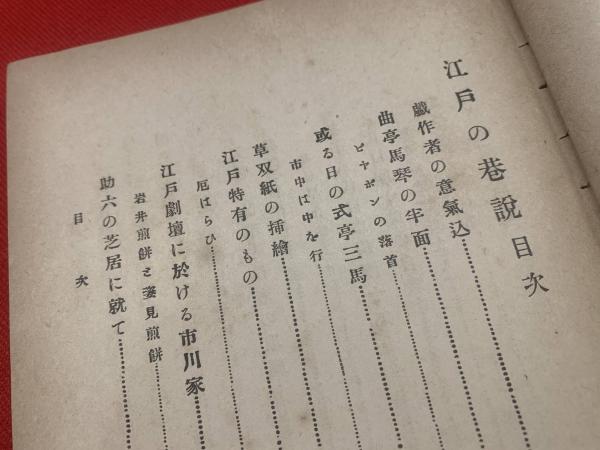 江戸の巷說目次
戯作者の意氣込
曲亭馬琴の半面
ビヤボンの落首
或る日の式亭三馬
市中は中を行
草双紙の挿繪
江戸特有のもの
厄はらひ
江戸劇壇に於ける市川家
岩井煎餅と姿見煎餅
助六の芝居に就て
目次